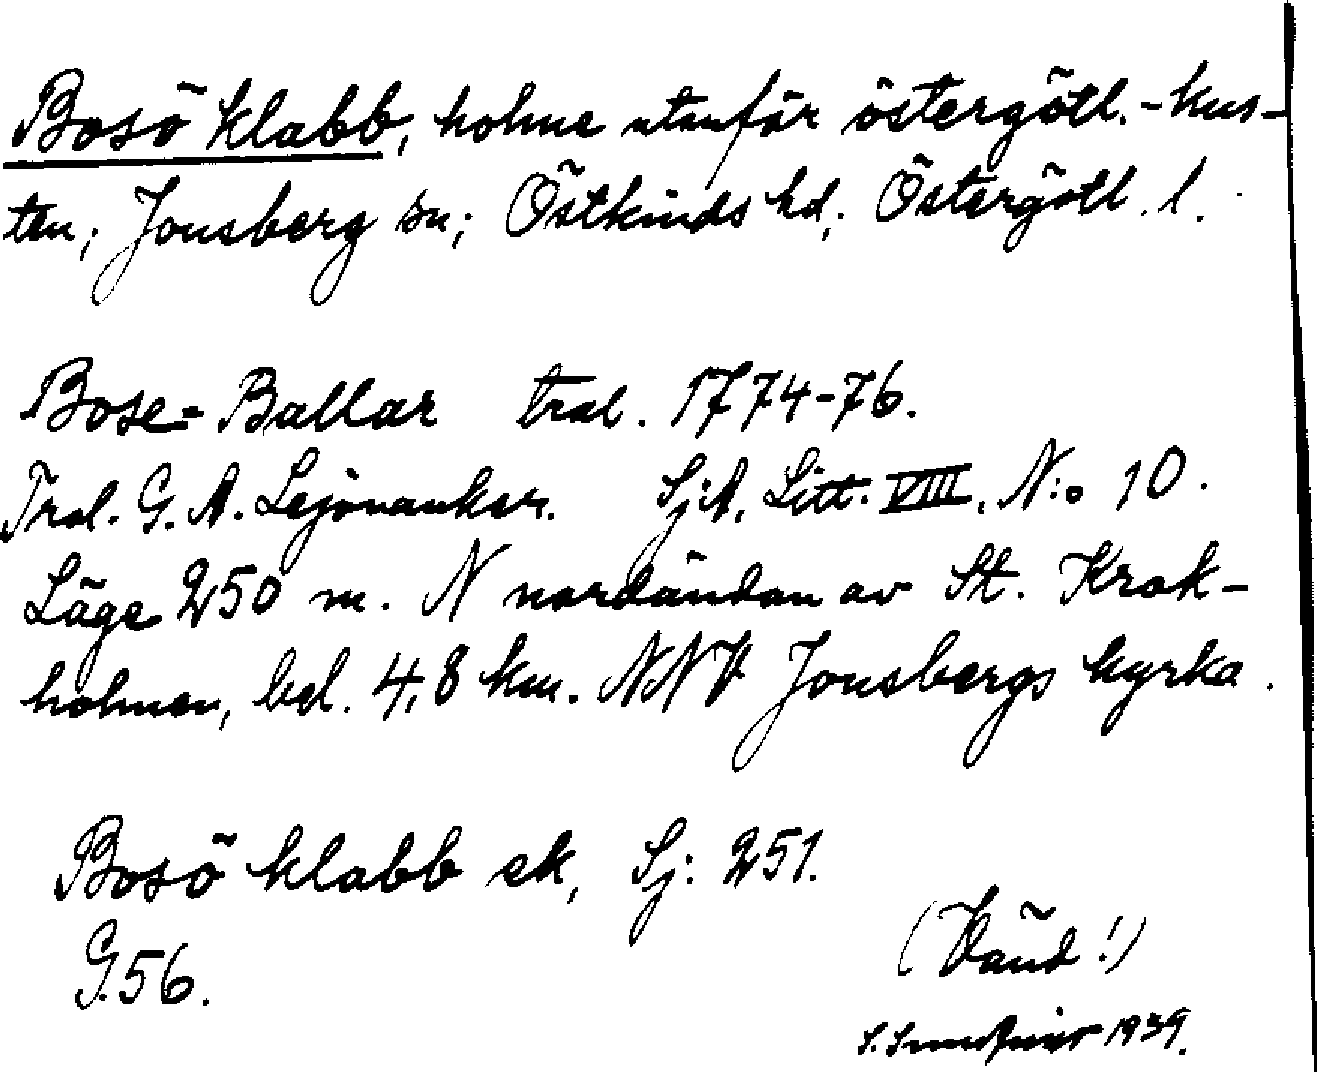 Bosö klabb, holme utanför östergötl.-kus-
ten; Jonsberg sn; Östkinds hd; Östergötl. l.
Bose-Ballar tral. 1774-76.
Tral. G. A. Lejonanker. SjA. Litt. VIII. N:o 10.
Läge 250 m. N nordändan av St. Krok-
holmen, bel. 4,8 km. NNV Jonsbergs kyrka.
Bosö klabb ek, Sj: 251.
G.56.
(Vänd!)
S. 1939.